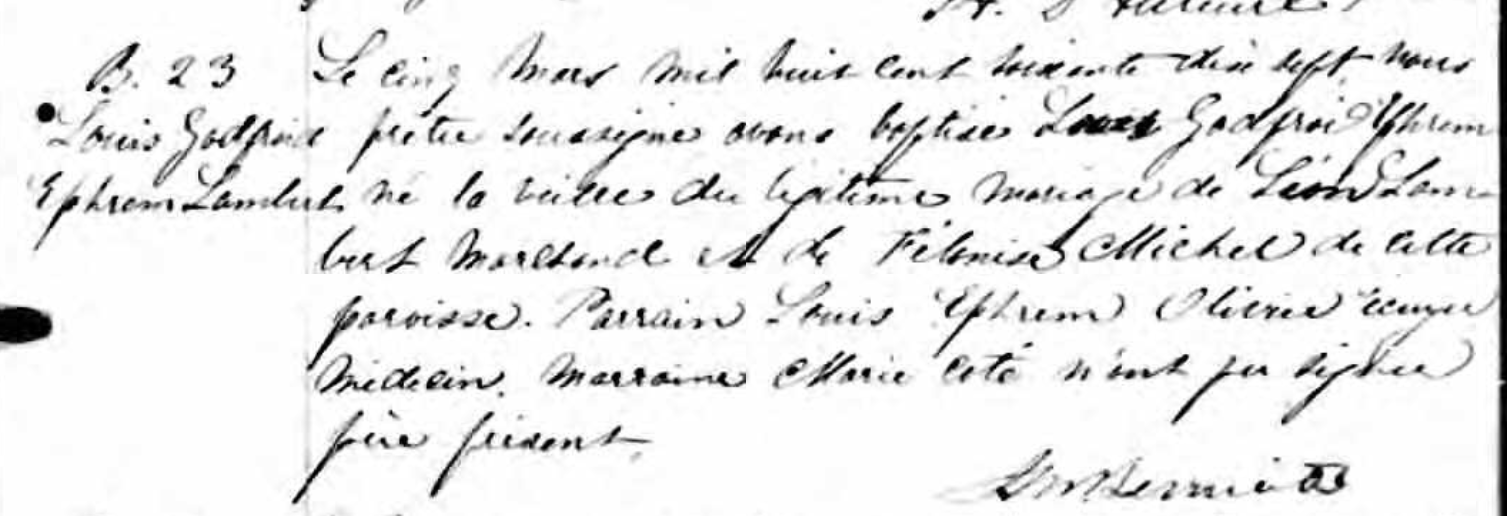 B. 23
Louis Godfroid
Ephrem Lambert
Le cinq Mars mil huit cent soixante dix sept nous
prêtre soussigné avons baptisé Louis Godfroi Ephrem
né la veille du légitime mariage de Léon Lam-
bert Marchand et de Félonise Michel de cette
paroisse. Parrain Louis Ephrem Olivier Ecuyer
Médecin. Marraine Marie Coté n'ont pu signer
père présent.